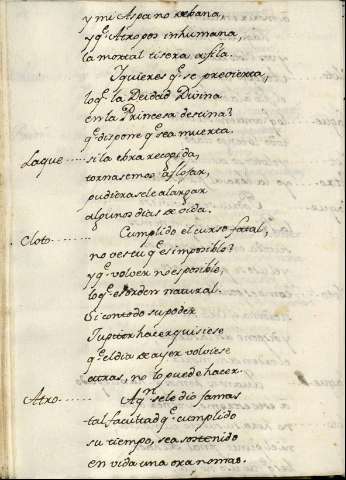 y mi Aspa no debana,
y q.e Atropos inhumana,
la mortal tisera afila.
Y quieres q.e se precvierta,
lo q.e la Deidad Divina
en la Princesa destina?
q.e dispone q.e sea muerta.
Laque...... si la ebra recogida,
tornasemos a aflojar,
pudiera se le alargar
algunos dias de vida.
Cloto....... Cumplido el curso fatal,
no ves tu q.e es imposible?
y q.e volver no es posible,
lo q.e es orden natural.
Si con todo su poder
Jupiter hacer quisiese
q.e el dia de ayer volviese
atras, no lo puede hacer.
Atro....... A q.n se le dio jamas
tal facultad q.e cumplido
su tiempo, sea sostenido
en vida una ora no mas.